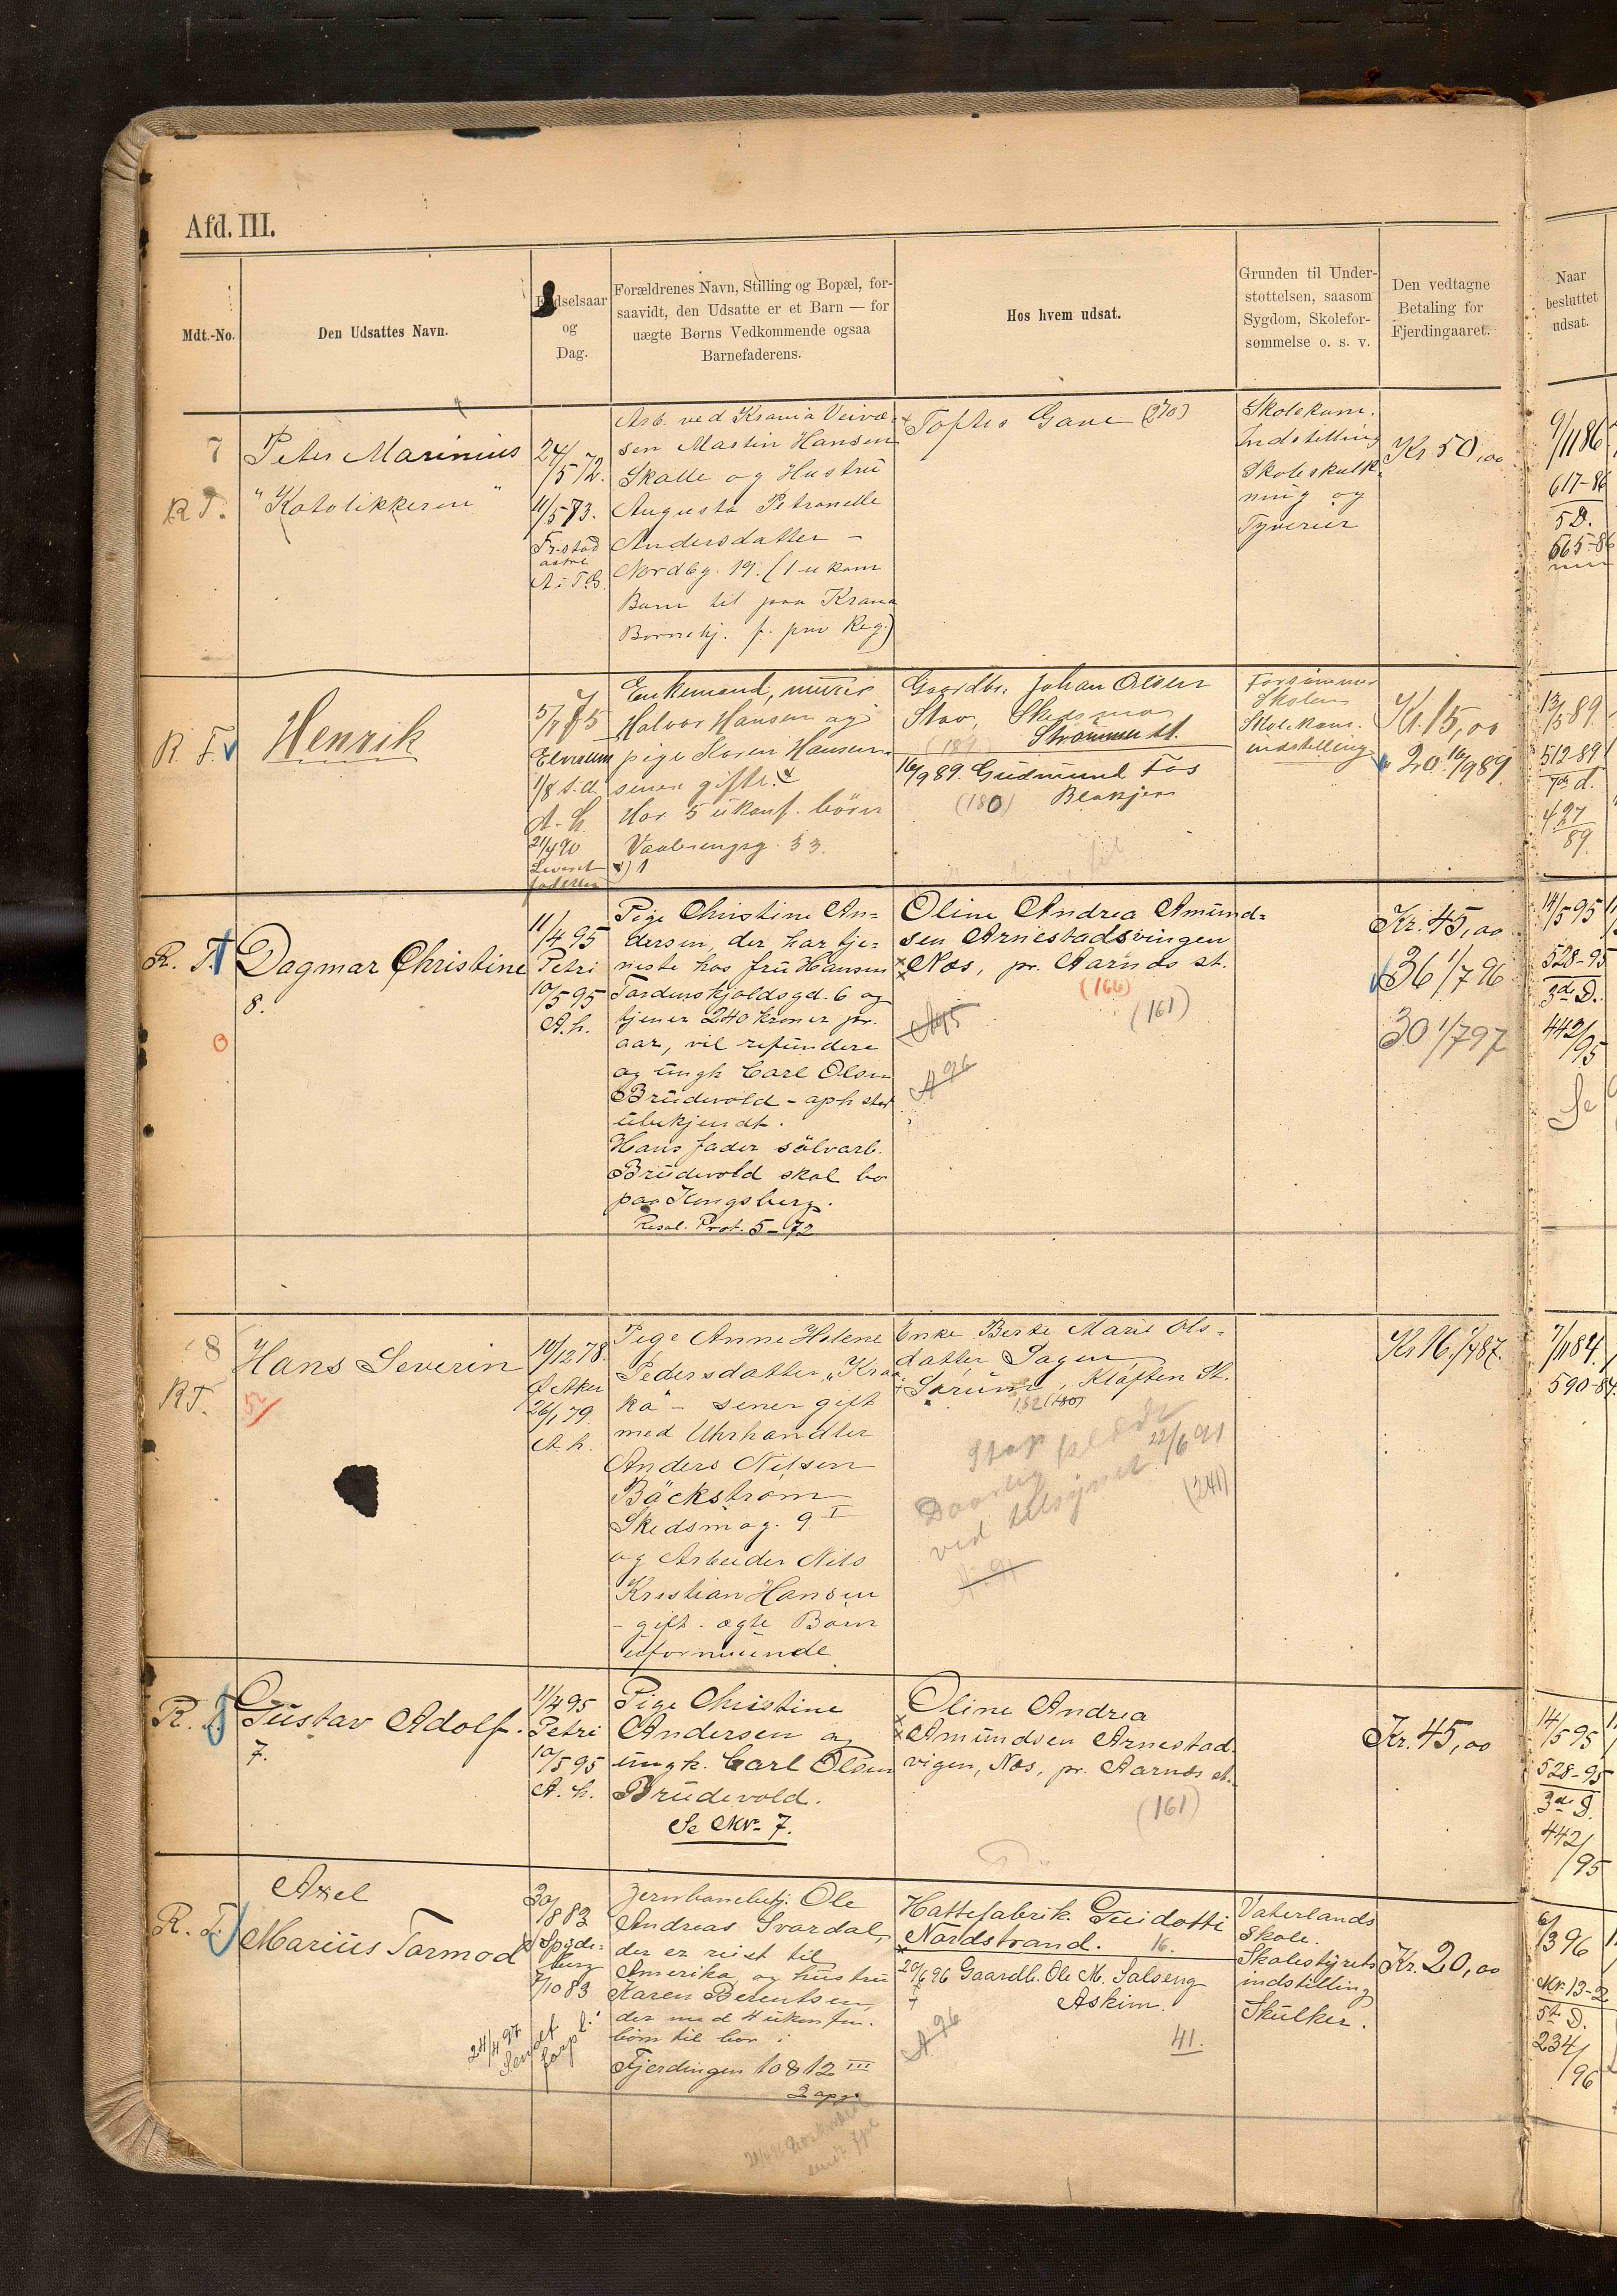 Afd. III.
Mdt.-No.
Den Udsattes Navn.
Fødselsaar
og
Dag.
Forældrenes Navn, Stilling og Bopæl, for-
saavidt, den Udsatte er et Barn — for
uægte Børns Vedkommende ogsaa
Barnefaderens.
Hos hvem udsat.
Grunden til Under-
støttelsen, saasom
Sygdom, Skolefor-
sømmelse o. s. v.
Den vedtagne
Betaling for
Fjerdingaaret.
Naar
besluttet
udsat.
7
R T.
Peter Marinius
"Katolikkeren"
24/5 72.
11/5 73.
Fr.stad
A i T.B.
Arb. ved Krania Veivæ-
sen Martin Hansen
Skalle og Hustru
Augusta Petronelle
Andersdatter -
Nordbg. 19. (1 ukom
Barn til paa Krana
Børnehj. f. priv Reg.)
Toftes Gave (270)
Skolekom.
Indstilling
Skoleskulk-
ning og
Tyverier
Kr 50,00
9/11 86
617-86
5 D.
665-86
R. T.
Henrik
5/7 75
Elverum
1/8 s.d.
A. h.
21/4 90
Leveret
faderen
Enkemand, murer
Halvor Hansen og
pige Karen Hansen
senere gifte.
Har 5 ukonf. børn
Vaalerengg. 33.
x) 1
Gaardbr. Johan Olsen
Stav, Skedsmo
Strømmen st.
(189
16/9 89. Gudmund Fos
(180) Blakjer
Forsømmer
Skolen
Skolekom.
indstilling
Kr. 15,00
" 20 16/9 89
13/5 89.
512-89
7de d.
427/89.
R. T.
Dagmar Christine
8.
0
11/4 95
Petri
10/5 95
A. h.
Pige Christine An=
dersen, der har tje=
neste hos fru Hansen
Tordenskjoldsgd. 6 og
tjener 240 kroner pr.
aar, vil refundere
og ungk. Carl Olsen
Brudevold - oph. sted
ubekjendt.
Hans fader sølvarb.
Brudevold skal bo
paa Kongsberg.
Resol. Prot. 5-72
Oline Andrea Amund=
sen Arnestadsvingen
Nes, pr. Aarnes st.
(166)
(161)
A 95
A 96
Kr. 45,00
36 1/7 96
30 1/7 97
14/5 95
528-95
3de D.
442/95
Se
8
RT.
Hans Severin
52
10/12 78.
Ø Aker
26/1 79.
A. h.
Pige Anne Helene
Pedersdatter "Kra
ka" - sener gift
med Uhrhandler
Anders Nilsen
Bäckstrøm
Skedsmog. 9. I
og Arbeider Nils
Kristian Hansen
- gift - ægte Børn
uformuende
Enke Berte Marie Ols-
datter Sagen
Sørum, Kløften St.
182 (180)
Daarlig
ved tilsynet 22/6 91
(241)
A. 91
Kr 16. 1/4 87.
7/11 84.
590-84.
R. T.
Gustav Adolf.
7.
11/4 95
Petri
10/5 95
A. h.
Pige Christine
Andersen og
ungk. Carl Olsen
Brudevold.
Se Nr. 7.
Oline Andrea
Amundsen Arnestad
vigen, Nes, pr. Aarnes st.
(161)
Kr. 45,00
14/5 95
528-95
3de D.
442/95
R. T.
Axel
Marius Tormod
30/8 83
Spyde=
berg
7/10 83
24/4 97
Sendt
Jernbanebetj. Ole
Andreas Svardal,
der er reist til
Amerika og hustru
Karen Berentsen,
der med 4 ukonfm.
børn til bor i
Fjerdingen 10 & 12 III
2 opg.
Hattefabrik. Guidotti
Nordstrand. 16.
20/6 96 Gaardb. Ole M. Salseng
Askim.
A 96
41.
Vaterlands
Skole.
Skolestyrets
indstilling
Skulker.
Kr. 20,00
6/3 96
Nr. 13-2
5te D.
234/96